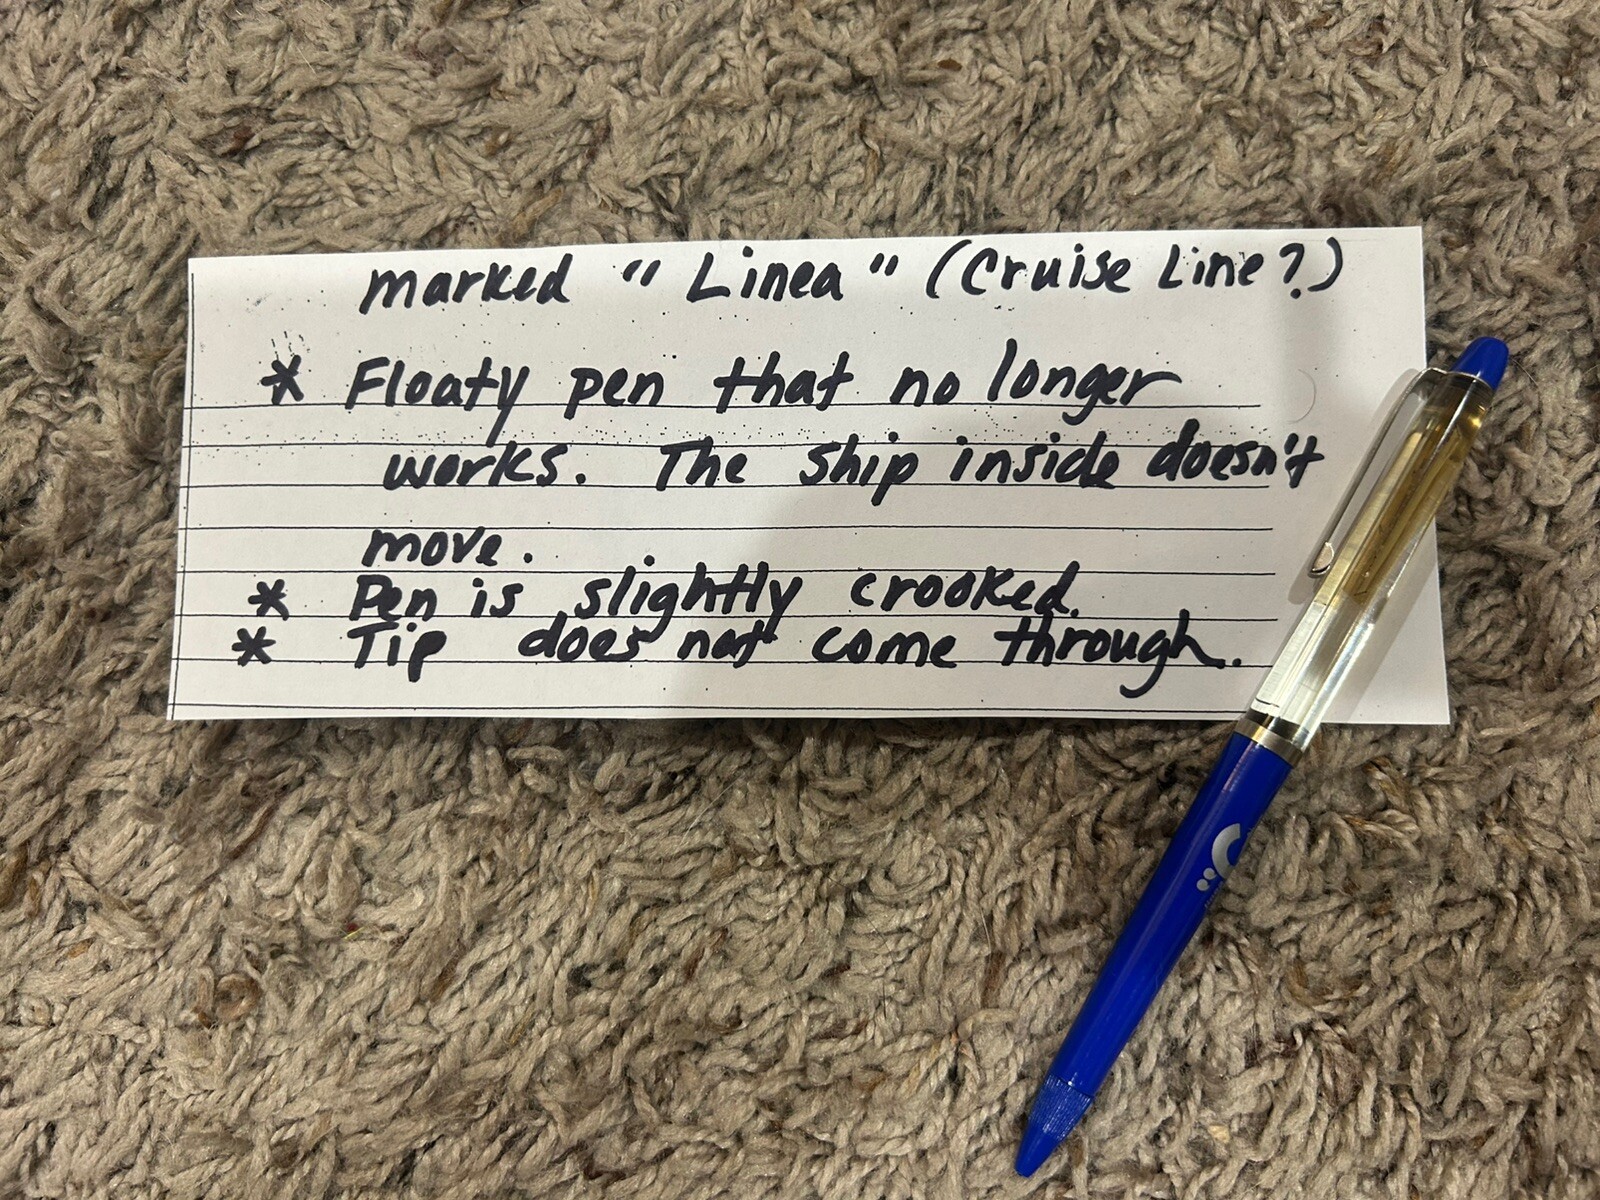 marked "Linea" (Cruise Line?)
* Floaty pen that no longer
works. The ship inside doesn't
move.
* Pen is slightly crooked.
* Tip does not come through.